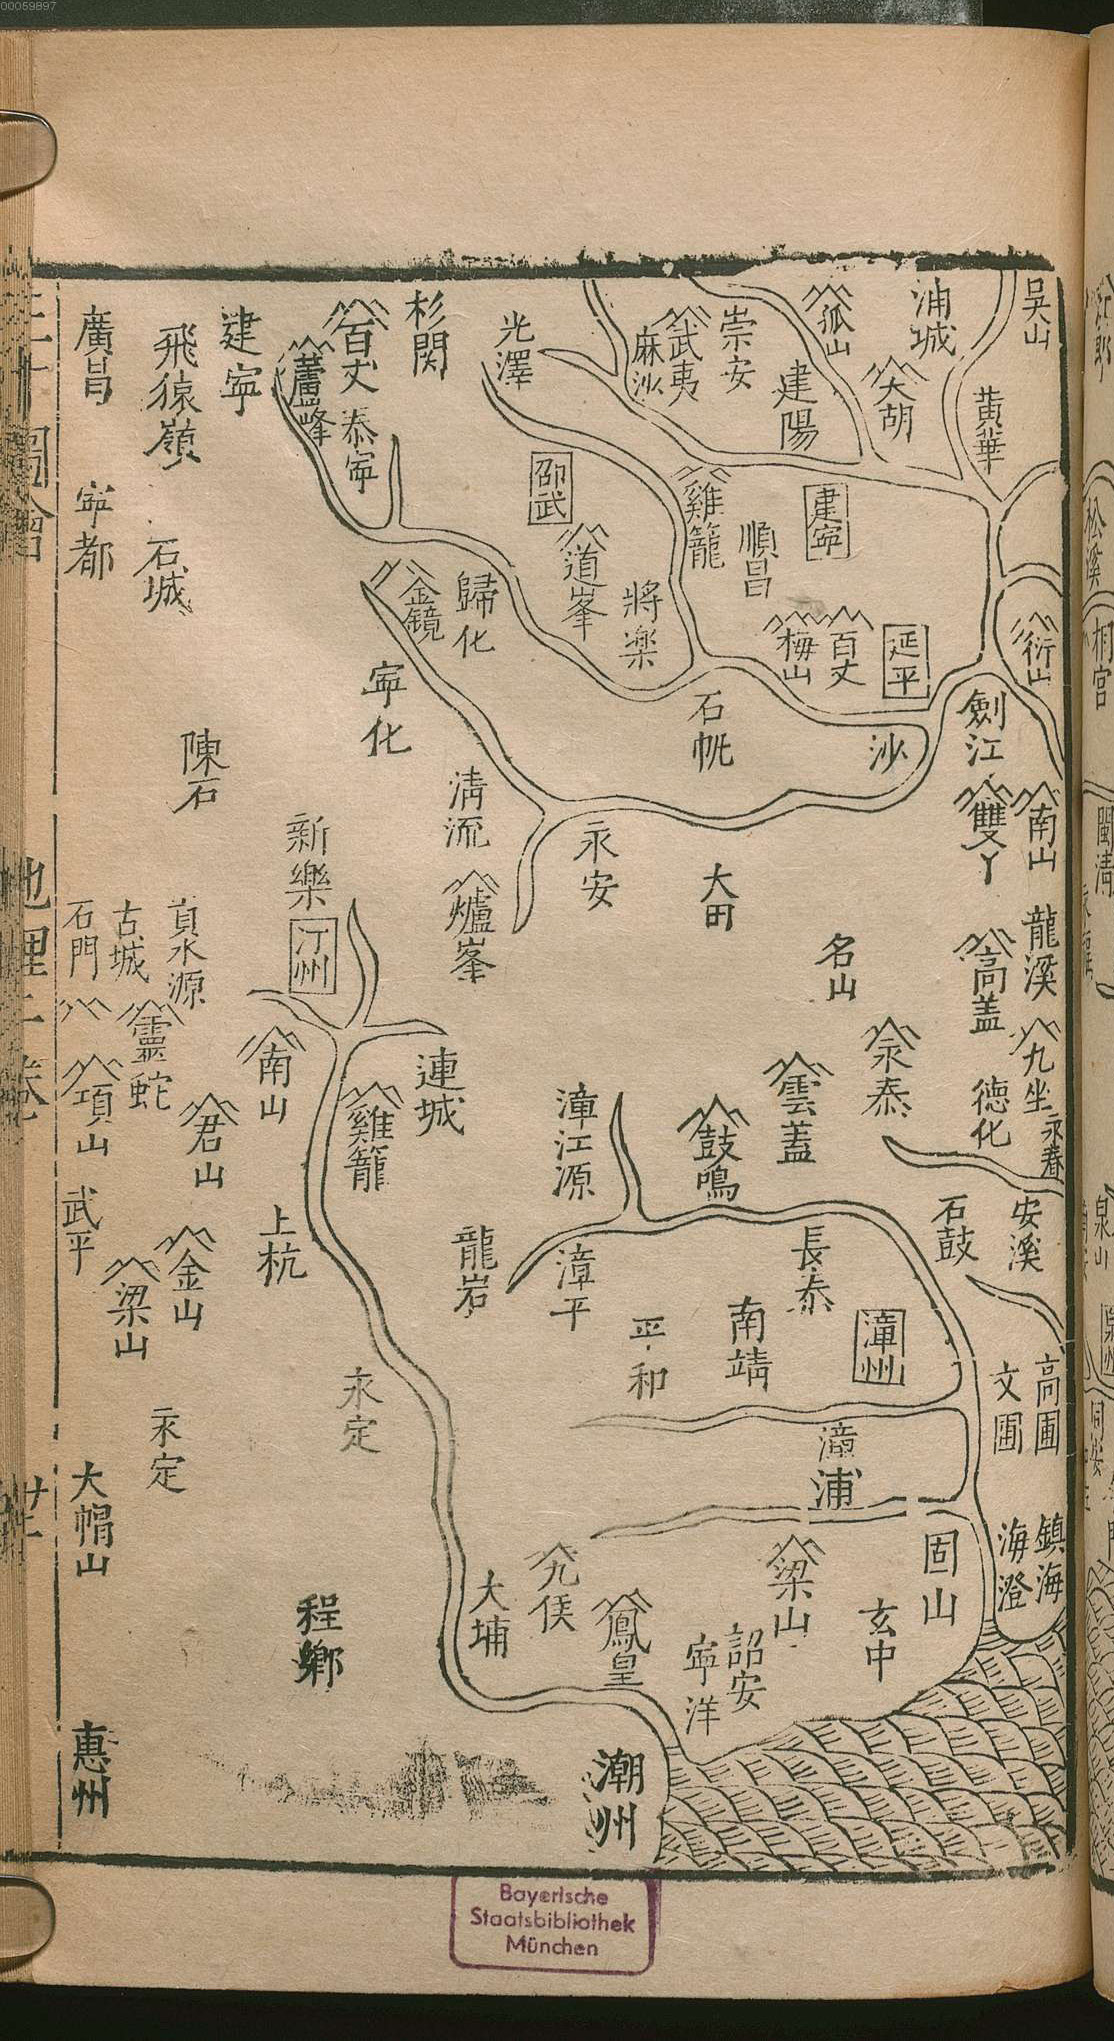 00059897
吳山
浦城
黃華
孤山
大胡
崇安
建陽
武夷
麻沙
光澤
杉関
百丈
泰寧
蘆峰
建寧
飛猿嶺
廣昌
邵武
雞籠
順昌
建寧
道峯
將樂
歸化
金鏡
寧都
石城
梅山
百丈
延平
衍山
劍江
沙
石帆
寧化
陳石
清流
永安
雙丫
南山
大田
龍溪
高蓋
名山
新樂
汀州
爐峯
貢水源
古城
石門
靈蛇
項山
君山
南山
雞籠
連城
漳江源
鼓鳴
雲蓋
永泰
九坐
德化
永春
安溪
石鼓
長泰
漳平
龍岩
上杭
武平
金山
梁山
漳州
南靖
平和
高圃
文圃
永定
永定
大帽山
漳浦
鎮海
海澄
固山
梁山
玄中
九侯
鳳皇
大埔
詔安
寧洋
程鄉
惠州
潮州
三才圖會
地理二卷
松溪
桐宮
閩清
泉山
泉州
同安
Bayerische
Staatsbibliothek
München